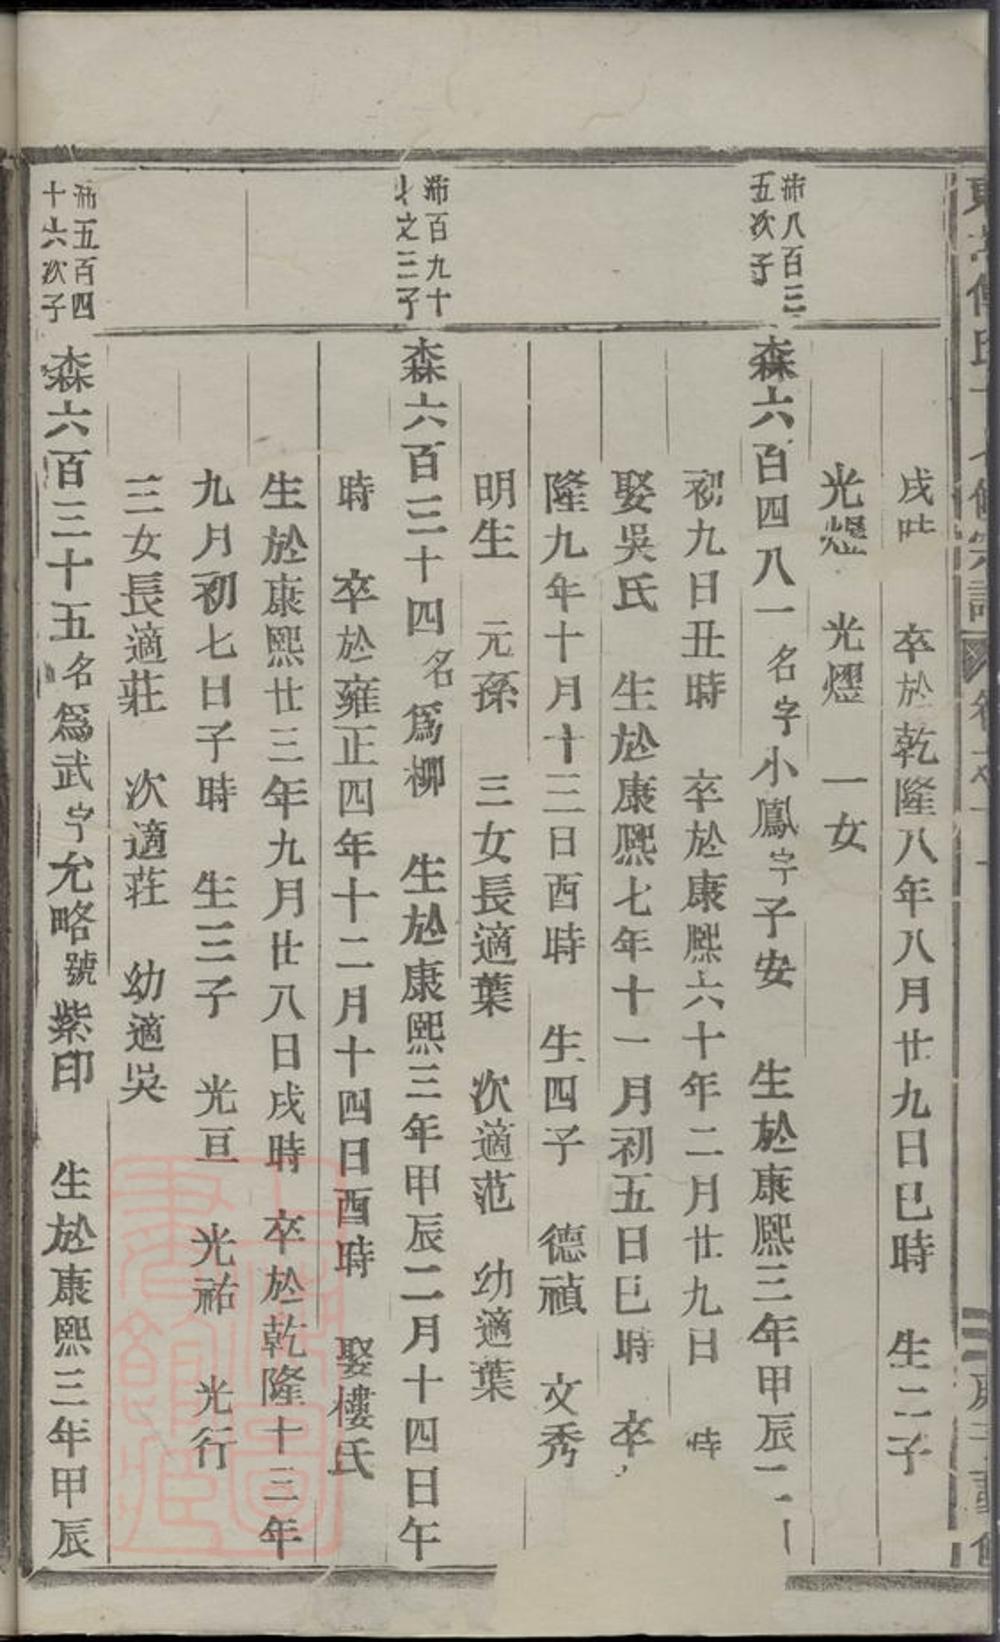 戌時 卒於乾隆八年八月廿九日巳時 生二子
光燈 光熠 一女
沛八百三
五次子
森六百四八一名字小鳳字子安 生於康熙三年甲辰二
初九日丑時 卒於康熙六十年二月廿九日 時
娶吳氏 生於康熙七年十一月初五日巳時 卒
隆九年十月十三日酉時 生四子 德禎 文秀
明生 元孫 三女長適葉 次適范 幼適葉
沛百九十
之三子
森六百三十四名爲柳 生於康熙三年甲辰二月十四日午
時 卒於雍正四年十二月十四日酉時 娶樓氏
生於康熙廿三年九月廿八日戌時 卒於乾隆十三年
九月初七日子時 生三子 光亘 光祐 光行
三女長適莊 次適莊 幼適吳
沛五百四
十六次子
森六百三十五名爲武字允略號紫印 生於康熙三年甲辰